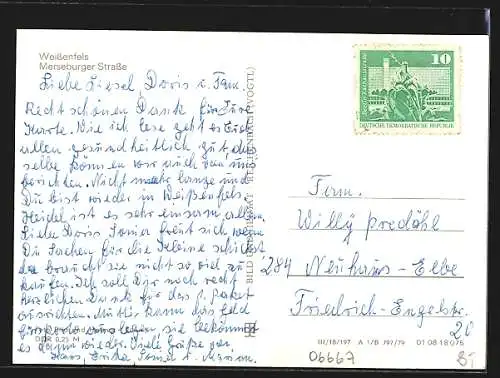 Weißenfels
Merseburger Straße
Liebe Liesel, Doris u. Fam.
Recht schönen Dank für Eure
Karte. Wie ich lese geht es Euch
allen gesundheitlich gut, das
selbe können wir auch von uns
berichten. Nicht mehr lange und
Du bist wieder in Weißenfels.
Heidel ist es sehr einsam allein.
Liebe Doris freut sich wenn
Du Sachen für die Kleine schickst
da braucht sie nicht so viel zu
kaufen. Ich soll Dir noch recht
herzlichen Dank für das Paket
ausrichten. Mutter kann das Geld
sie bekommt
es dann wieder. Viele Grüße
Hans, Erika u. Marion.
DDR 0,25 M
BILD UND HEIMAT REICHENBACH (VOGTL)
10
DEUTSCHE DEMOKRATISCHE REPUBLIK
Fam.
Willy Predöhl
284 Neuhaus-Elbe
Friedrich-Engelstr.
20
III/18/197 A 1/B 797/79 01 08 18 075
06667